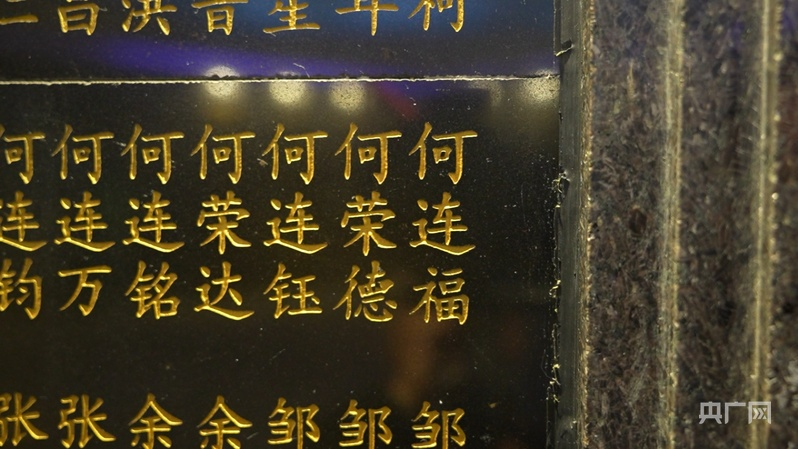 何连福
何荣德
何连钰
何荣达
何连铭
何连万
何连钧
邹
邹
邹
余
余
张
张
央广网